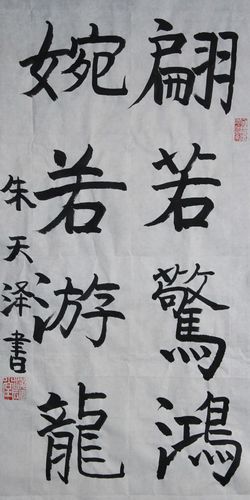 翩若驚鴻
婉若游龍
朱天泽書